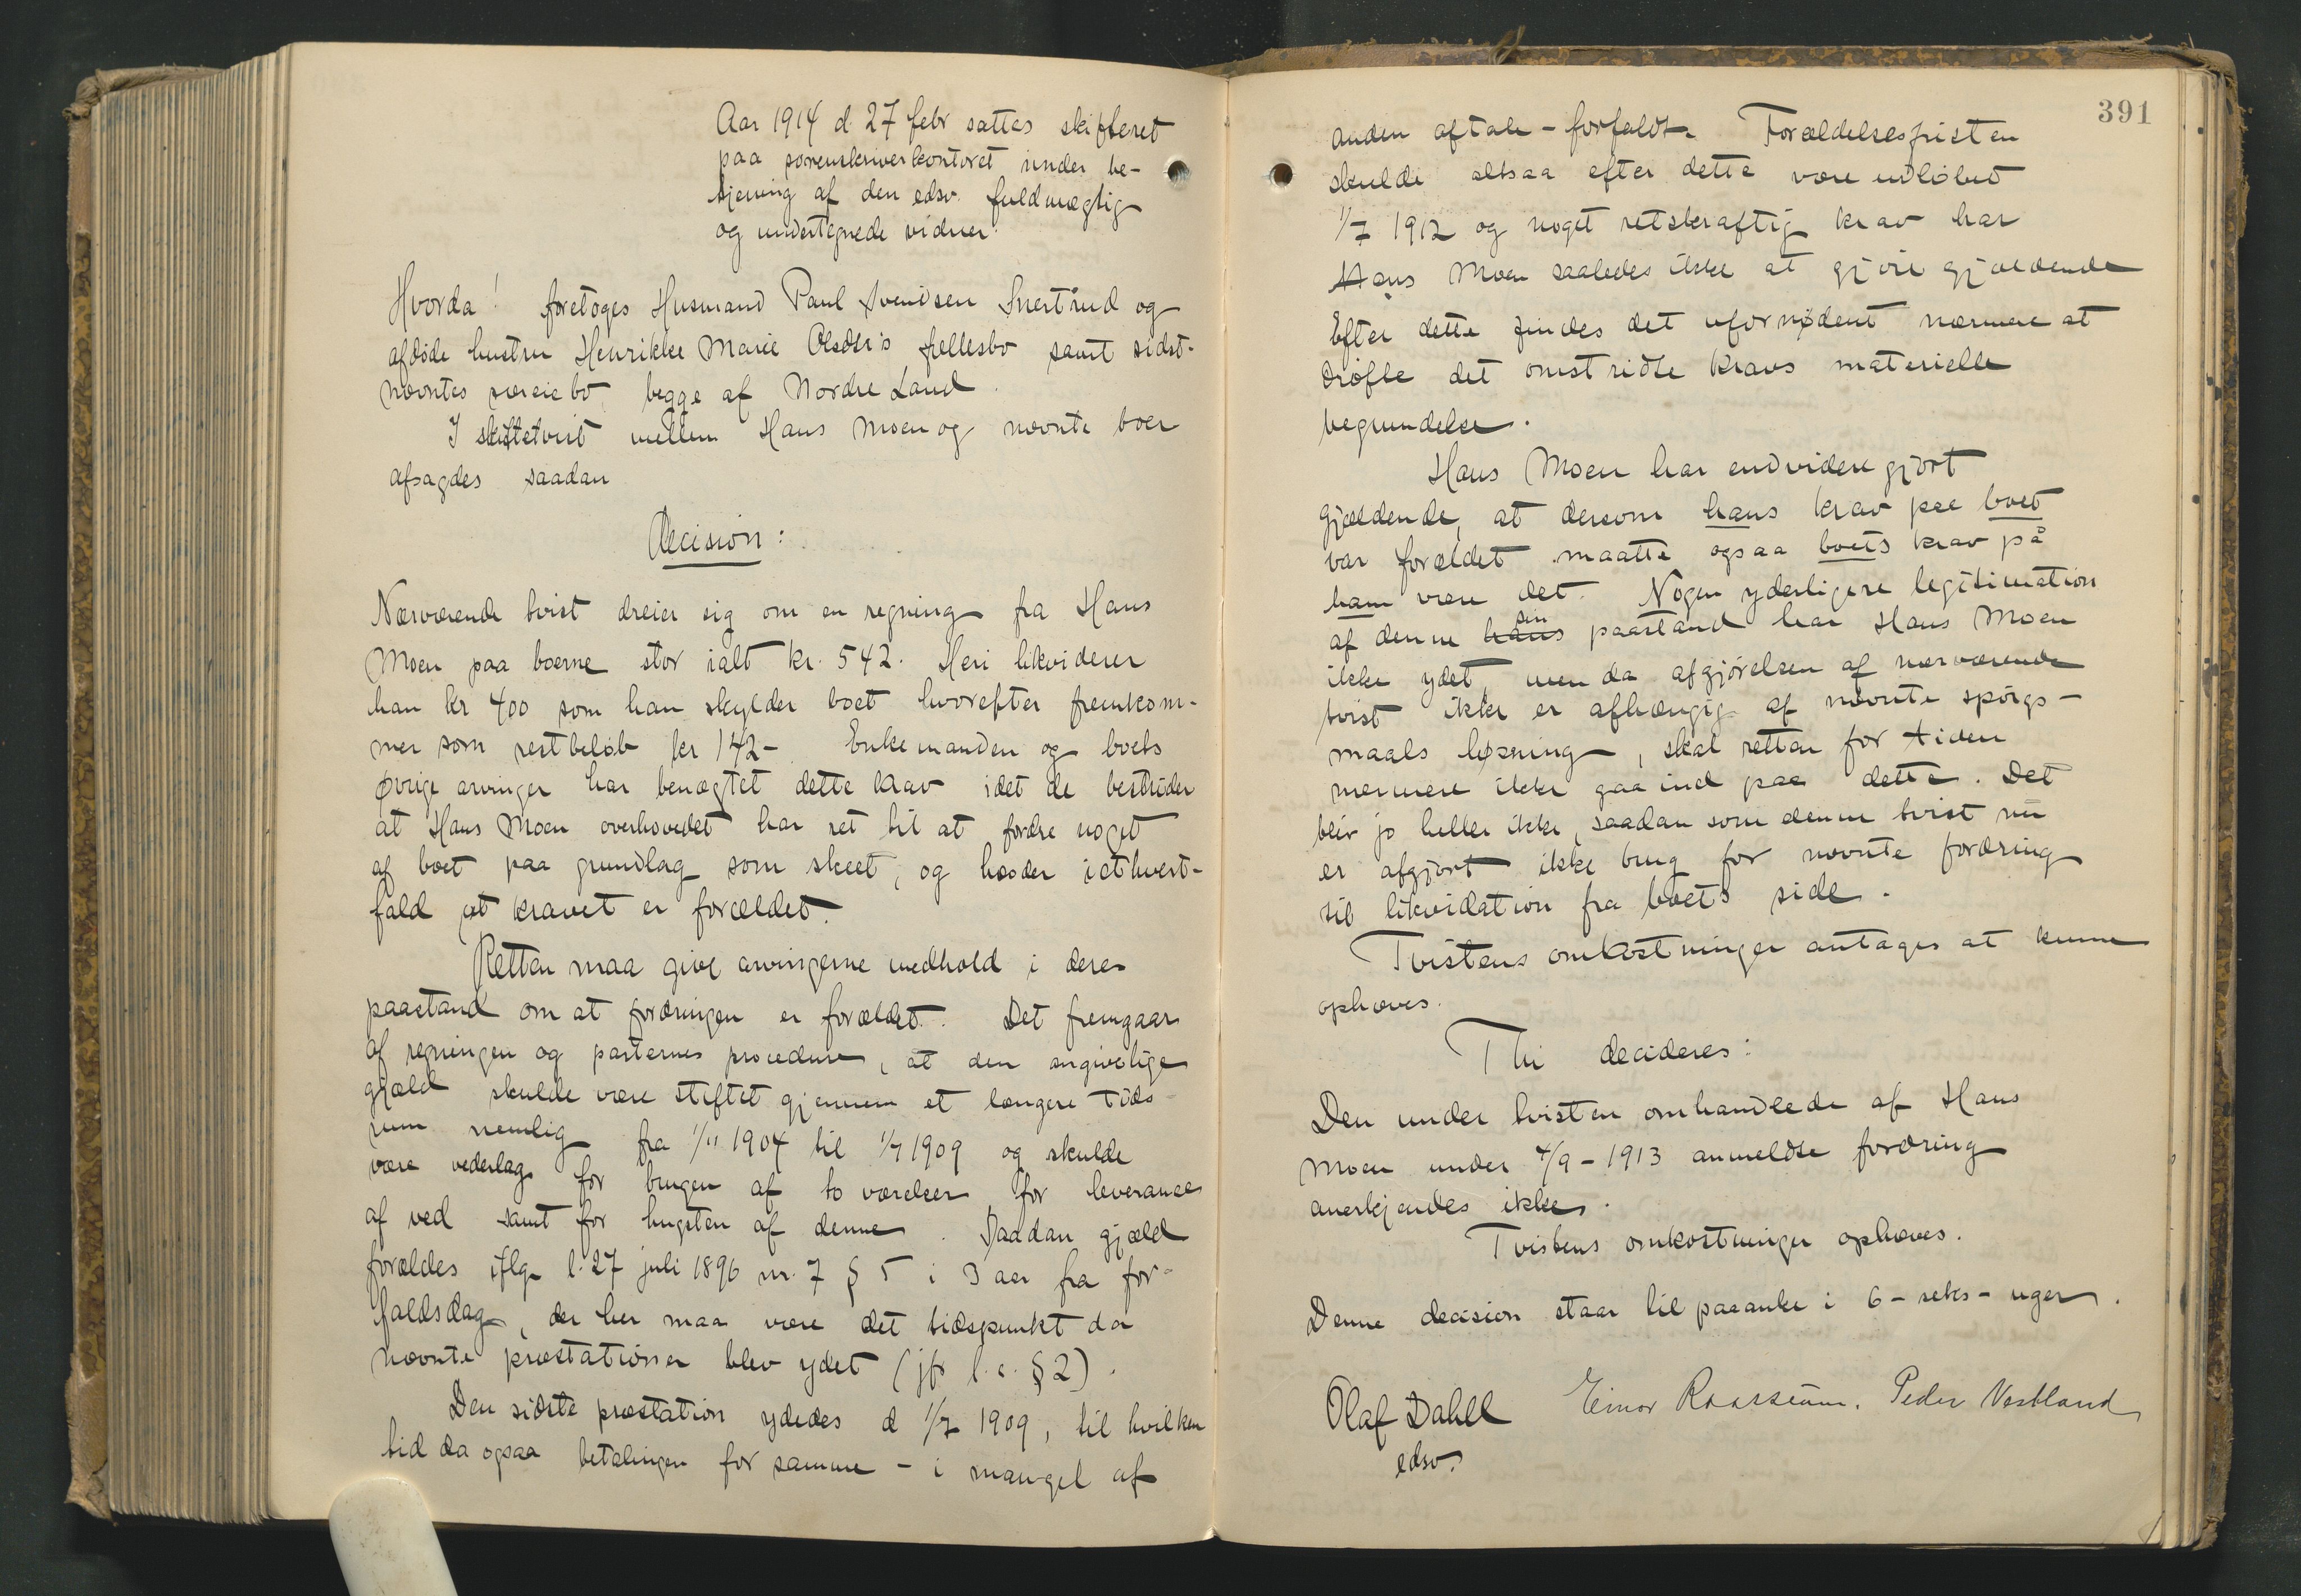 Aar 1914 d. 27 febr sattes skifteret
paa sorenskriverkontoret under be-
tjening af den edsv. fuldmægtig
og undertegnede vidner.
Hvorda! foretoges Husmand Paul Svendsen Snertrud og
afdøde hustru Henrikke Marie Olsdtr's fællesbo samt sidst-
nævntes særeiebo, begge af Nordre Land.
I skiftetvist mellem Hans Moen og nævnte boer
afsagdes saadan
Decision:
Nærværende tvist dreier sig om en regning fra Hans
Moen paa boerne stor ialt kr. 542. Heri likviderer
han kr 400 som han skylder boet hvorefter fremkom-
mer som restbeløb kr 142- Enkemanden og boets
øvrige arvinger har benægtet dette krav idet de bestrider
at Hans Moen overhovedet har ret til at fordre noget
af boet paa grundlag som skeet, og hævder i ethvert-
fald at kravet er forældet.
Retten maa give arvingerne medhold i deres
paastand om at fordringen er forældet. Det fremgaar
af regningen og parternes procedure, at den angivelige
gjæld skulde være stiftet gjennem et længere tids-
rum nemlig fra 1/11 1904 til 1/7 1909 og skulde
være vederlag for brugen af to værelser, for leverance
af ved samt for hugsten af denne. Saadan gjæld
forældes iflg. l. 27 juli 1896 nr. 7 § 5 i 3 aar fra for-
faldsdag, der her maa være det tidspunkt da
nævnte præstationer blev ydet (jfr l. c. § 2).
Den sidste præstation ydedes d 1/7 1909, til hvilken
tid da ogsaa betalingen for samme - i mangel af
391
anden aftale - forfaldt. Forældelsesfristen
skulde altsaa efter dette være udløbet
1/7 1912 og noget retskraftig krav har
Hans Moen saaledes ikke at gjøre gjældende
Efter dette findes det ufornødent nærmere at
drøfte det omstridte kravs materielle
begrundelse.
Hans Moen har endvidere gjort
gjældende, at dersom hans krav paa boet
var forældet maatte ogsaa boets krav på
ham være det. Nogen yderligere legitimation
af denne hans sin paastand har Hans Moen
ikke ydet, men da afgjørelsen af nærværende
tvist ikke er afhængig af nævnte spørgs-
maals løsning, skal retten for tiden
nærmere ikke gaa ind paa dette. Det
blir jo heller ikke, saadan som denne tvist nu
er afgjort ikke brug for nævnte fordring
til likvidation fra boets side.
Tvistens omkostninger antages at kunne
ophæves.
Thi decideres:
Den under tvisten omhandlede af Hans
Moen under 4/9 - 1913 anmeldte fordring
anerkjendes ikke.
Tvistens omkostninger ophæves.
Denne decision staar til paaanke i 6 - seks - uger.
Olaf Dahll Einar Raassum. Peder Vestland
edsv.